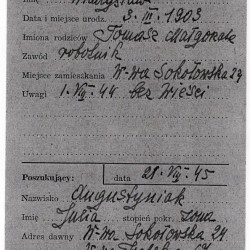 Imię Władysław
Data i miejsce urodz. 3. III. 1903
Imiona rodziców Tomasz Małgorzata
Zawód robotnik
Miejsce zamieszkania W-wa Sokołowska 24
Uwagi 1.VIII.44 bez wieści
Poszukujący: data 21.VII.45
Nazwisko Augustyniak
Imię Julia stopień pokr. żona
Adres dawny W-wa Sokołowska 24